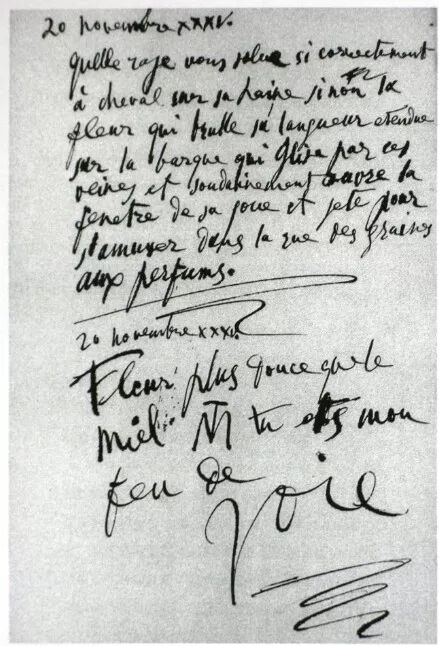 20 novembre XXXV.
quelle rage vous salue si correctement
à cheval sur sa haine sinon la
fleur qui brulle sa langueur etendue
sur la barque qui glise par ces
veines et soudainnement ouvre la
fenetre de sa joue et jete pour
s'amuser dans la rue des graines
aux perfums.
20 novembre XXXV.
Fleur plus douce que le
miel MT tu es mon
feu de
joie